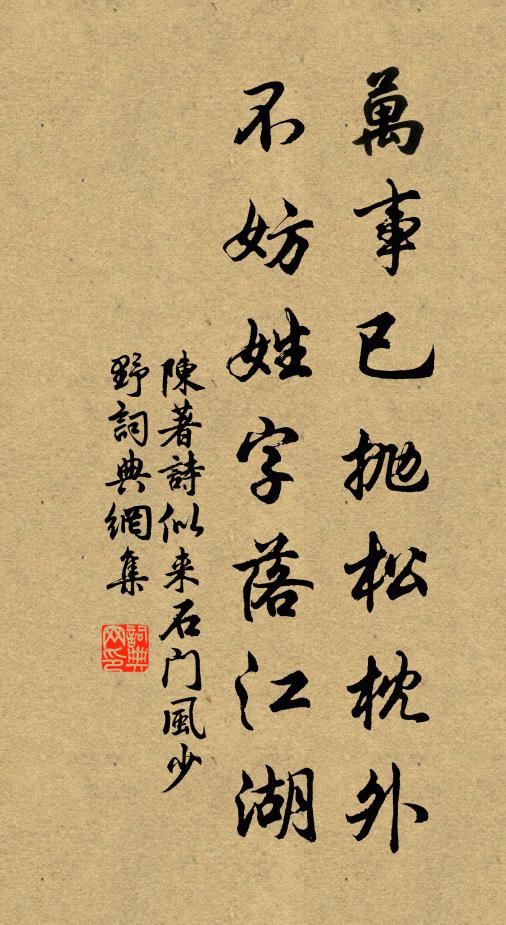 萬事已抛松枕外
不妨姓字落江湖
陳著詩似来石门風少
野詞典網集
詞典
网印